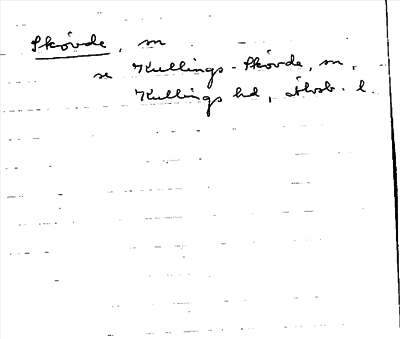 Skövde, sn
se Kullings-Skövde, sn,
Kullings hd, Älvsb. l.